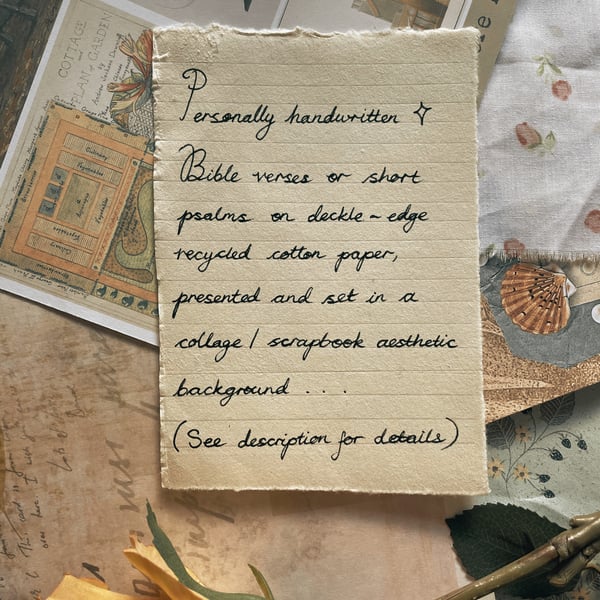 COTTAGE
and
PLAN of GARDEN
Culinary
Vegetables
Vegetables
Culinary
Personally handwritten ✧
Bible verses or short
psalms on deckle ~ edge
recycled cotton paper,
presented and set in a
collage / scrapbook aesthetic
background . . .
(See description for details)